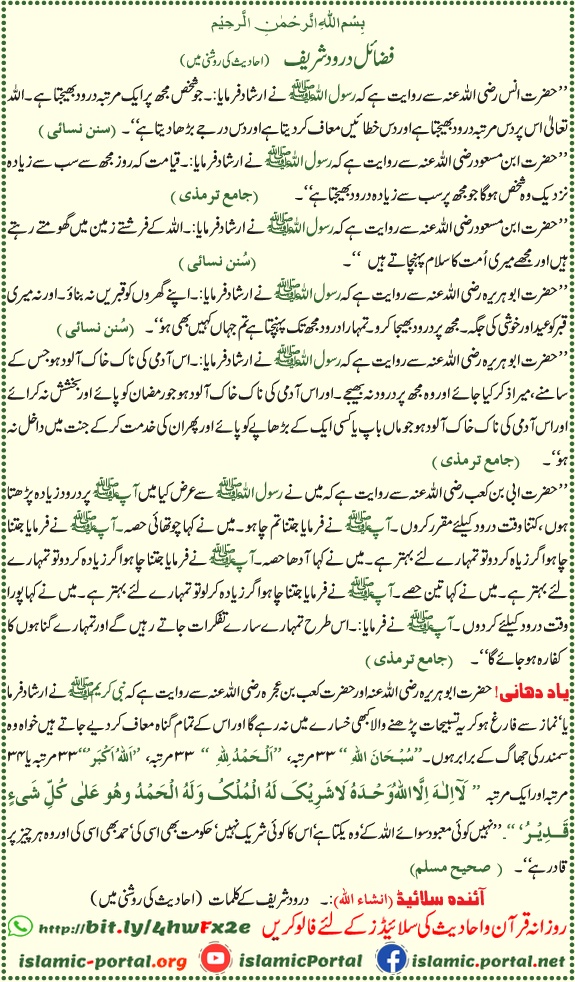 بِسْمِ اللهِ الرَّحْمٰنِ الرَّحِيْمِ
فضائل درود شریف (احادیث کی روشنی میں)
’’حضرت انس رضی اللہ عنہ سے روایت ہے کہ رسول اللہ ﷺ نے ارشاد فرمایا:۔ جو شخص مجھ پر ایک مرتبہ درود بھیجتا ہے۔ اللہ
تعالیٰ اس پر دس مرتبہ درود بھیجتا ہے اور دس خطائیں معاف کر دیتا ہے اور دس درجے بڑھا دیتا ہے‘‘۔ (سنن نسائی)
’’حضرت ابن مسعود رضی اللہ عنہ سے روایت ہے کہ رسول اللہ ﷺ نے ارشاد فرمایا:۔ قیامت کہ روز مجھ سے سب سے زیادہ
نزدیک وہ شخص ہوگا جو مجھ پر سب سے زیادہ درود بھیجتا ہے‘‘۔ (جامع ترمذی)
’’حضرت ابن مسعود رضی اللہ عنہ سے روایت ہے کہ رسول اللہ ﷺ نے ارشاد فرمایا:۔ اللہ کے فرشتے زمین میں گھومتے رہتے
ہیں اور مجھے میری اُمت کا سلام پہنچاتے ہیں ‘‘۔ (سُنن نسائی)
’’حضرت ابو ہریرہ رضی اللہ عنہ سے روایت ہے کہ رسول اللہ ﷺ نے ارشاد فرمایا:۔ اپنے گھروں کو قبریں نہ بناؤ۔ اور نہ میری
قبر کو عید اور خوشی کی جگہ۔ مجھ پر درود بھیجا کرو۔ تمہارا درود مجھ تک پہنچتا ہے تم جہاں کہیں بھی ہو‘‘۔ (سُنن نسائی)
’’حضرت ابو ہریرہ رضی اللہ عنہ سے روایت ہے کہ رسول اللہ ﷺ نے ارشاد فرمایا:۔ اس آدمی کی ناک خاک آلود ہو جس کے
سامنے، میرا ذکر کیا جائے اور وہ مجھ پر درود نہ بھیجے۔ اور اس آدمی کی ناک خاک آلود ہو جو رمضان کو پائے اور بخشش نہ کرائے
اور اس آدمی کی ناک خاک آلود ہو جو ماں باپ یا کسی ایک کے بڑھاپے کو پائے اور پھر ان کی خدمت کر کے جنت میں داخل نہ
ہو‘‘۔ (جامع ترمذی)
’’حضرت ابی بن کعب رضی اللہ عنہ سے روایت ہے کہ میں نے رسول اللہ ﷺ سے عرض کیا میں آپ ﷺ پر درود زیادہ پڑھتا
ہوں، کتنا وقت درود کیلئے مقرر کروں۔ آپ ﷺ نے فرمایا جتنا تم چاہو۔ میں نے کہا چوتھائی حصہ۔ آپ ﷺ نے فرمایا جتنا
چاہو اگر زیاہ کر دو تو تمہارے لئے بہتر ہے۔ میں نے کہا آدھا حصہ۔ آپ ﷺ نے فرمایا جتنا چاہو اگر زیادہ کر دو تو تمہارے
لئے بہتر ہے۔ میں نے کہا تین حصے۔ آپ ﷺ نے فرمایا جتنا چاہو اگر زیادہ کر لو تو تمہارے لئے بہتر ہے۔ میں نے کہا پورا
وقت درود کیلئے کر دوں۔ آپ ﷺ نے فرمایا:۔ اس طرح تمہارے سارے تفکرات جاتے رہیں گے اور تمہارے گناہوں کا
کفارہ ہو جائے گا‘‘۔ (جامع ترمذی)
یاد دھانی! حضرت ابو ہریرہ رضی اللہ عنہ اور حضرت کعب بن عجرہ رضی اللہ عنہ سے روایت ہے کہ نبی کریم ﷺ نے ارشاد فرما
یا ’نماز سے فارغ ہو کر یہ تسبیحات پڑھنے والا کبھی خسارے میں نہ رہے گا اور اس کے تمام گناہ معاف کر دیے جاتے ہیں خواہ وہ
سمندر کی جھاگ کے برابر ہوں۔ ”سُبْحَانَ اللهِ“ ۳۳ مرتبہ، ”اَلْحَمْدُ لِلهِ“ ۳۳ مرتبہ، ”اَللهُ اَكْبَر“ ۳۳ مرتبہ یا ۳۴
مرتبہ اور ایک مرتبہ ”لَآ اِلٰهَ اِلَّا اللهُ وَحْدَهٗ لَا شَرِيْكَ لَهُ الْمُلْكُ وَلَهُ الْحَمْدُ وهُو عَلٰى كُلِّ شَىءٍ
قَدِيْرُ‘ “۔ ”نہیں کوئی معبود سوائے اللہ کے‘ وہ یکتا ہے‘ اس کا کوئی شریک نہیں‘ حکومت بھی اسی کی‘ حمد بھی اسی کی اور وہ ہر چیز پر
قادر ہے“۔ (صحیح مسلم)
آئندہ سلائیڈ (انشاء اللہ):۔ درود شریف کے کلمات (احادیث کی روشنی میں)
روزانہ قرآن و احادیث کی سلائیڈز کے لئے فالو کریں http://bit.ly/4hwFx2e
islamic-portal.org islamicPortal islamic.portal.net